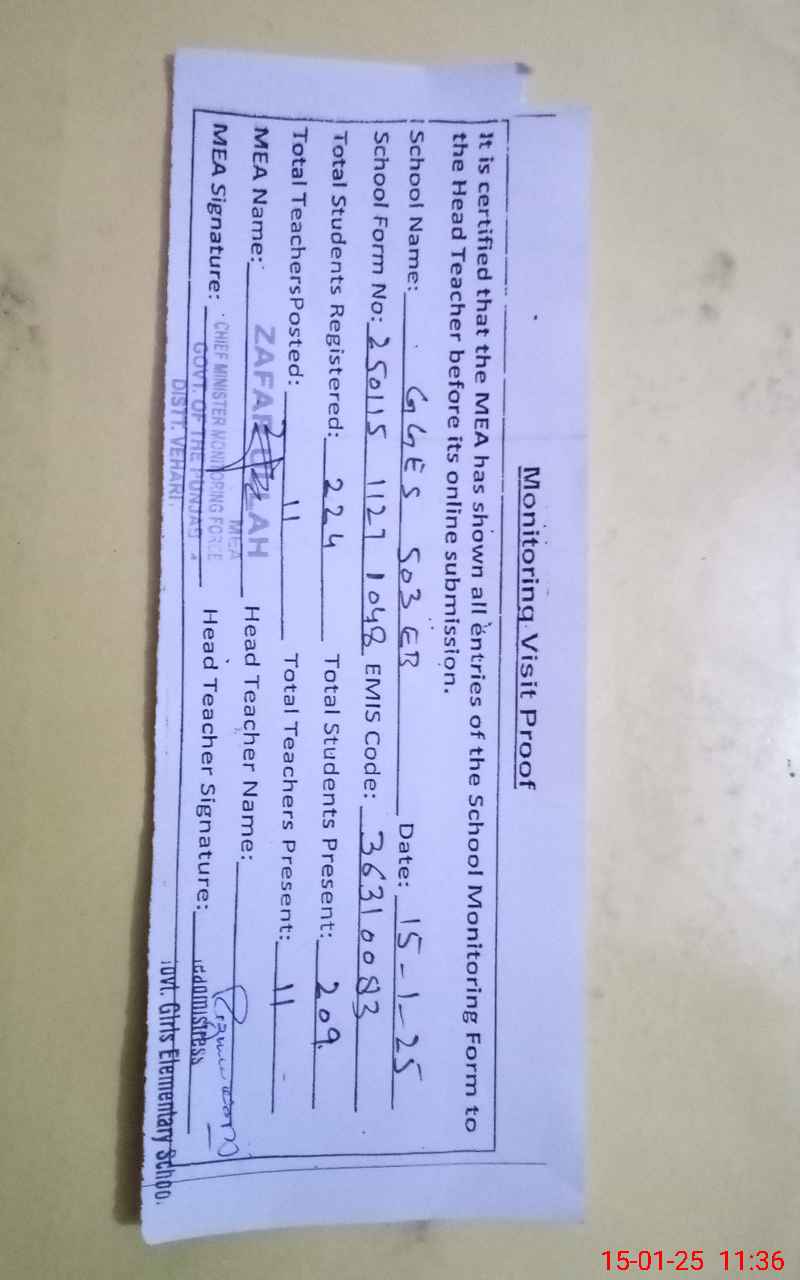 Monitoring Visit Proof
It is certified that the MEA has shown all entries of the School Monitoring Form to
the Head Teacher before its online submission.
School Name: GGES 503 EB Date: 15-1-25
School Form No: 250115 1127 1048 EMIS Code: 36310083
Total Students Registered: 224 Total Students Present: 209
Total TeachersPosted: 11 Total Teachers Present: 11
MEA Name: ZAFAR ULLAH Head Teacher Name:
MEA
MEA Signature: CHIEF MINISTER MONITORING FORCE Head Teacher Signature:
GOVT. OF THE PUNJAB
DISTT. VEHARI.
eadmistress
ovt. Girls Elementary Schoo
15-01-25 11:36